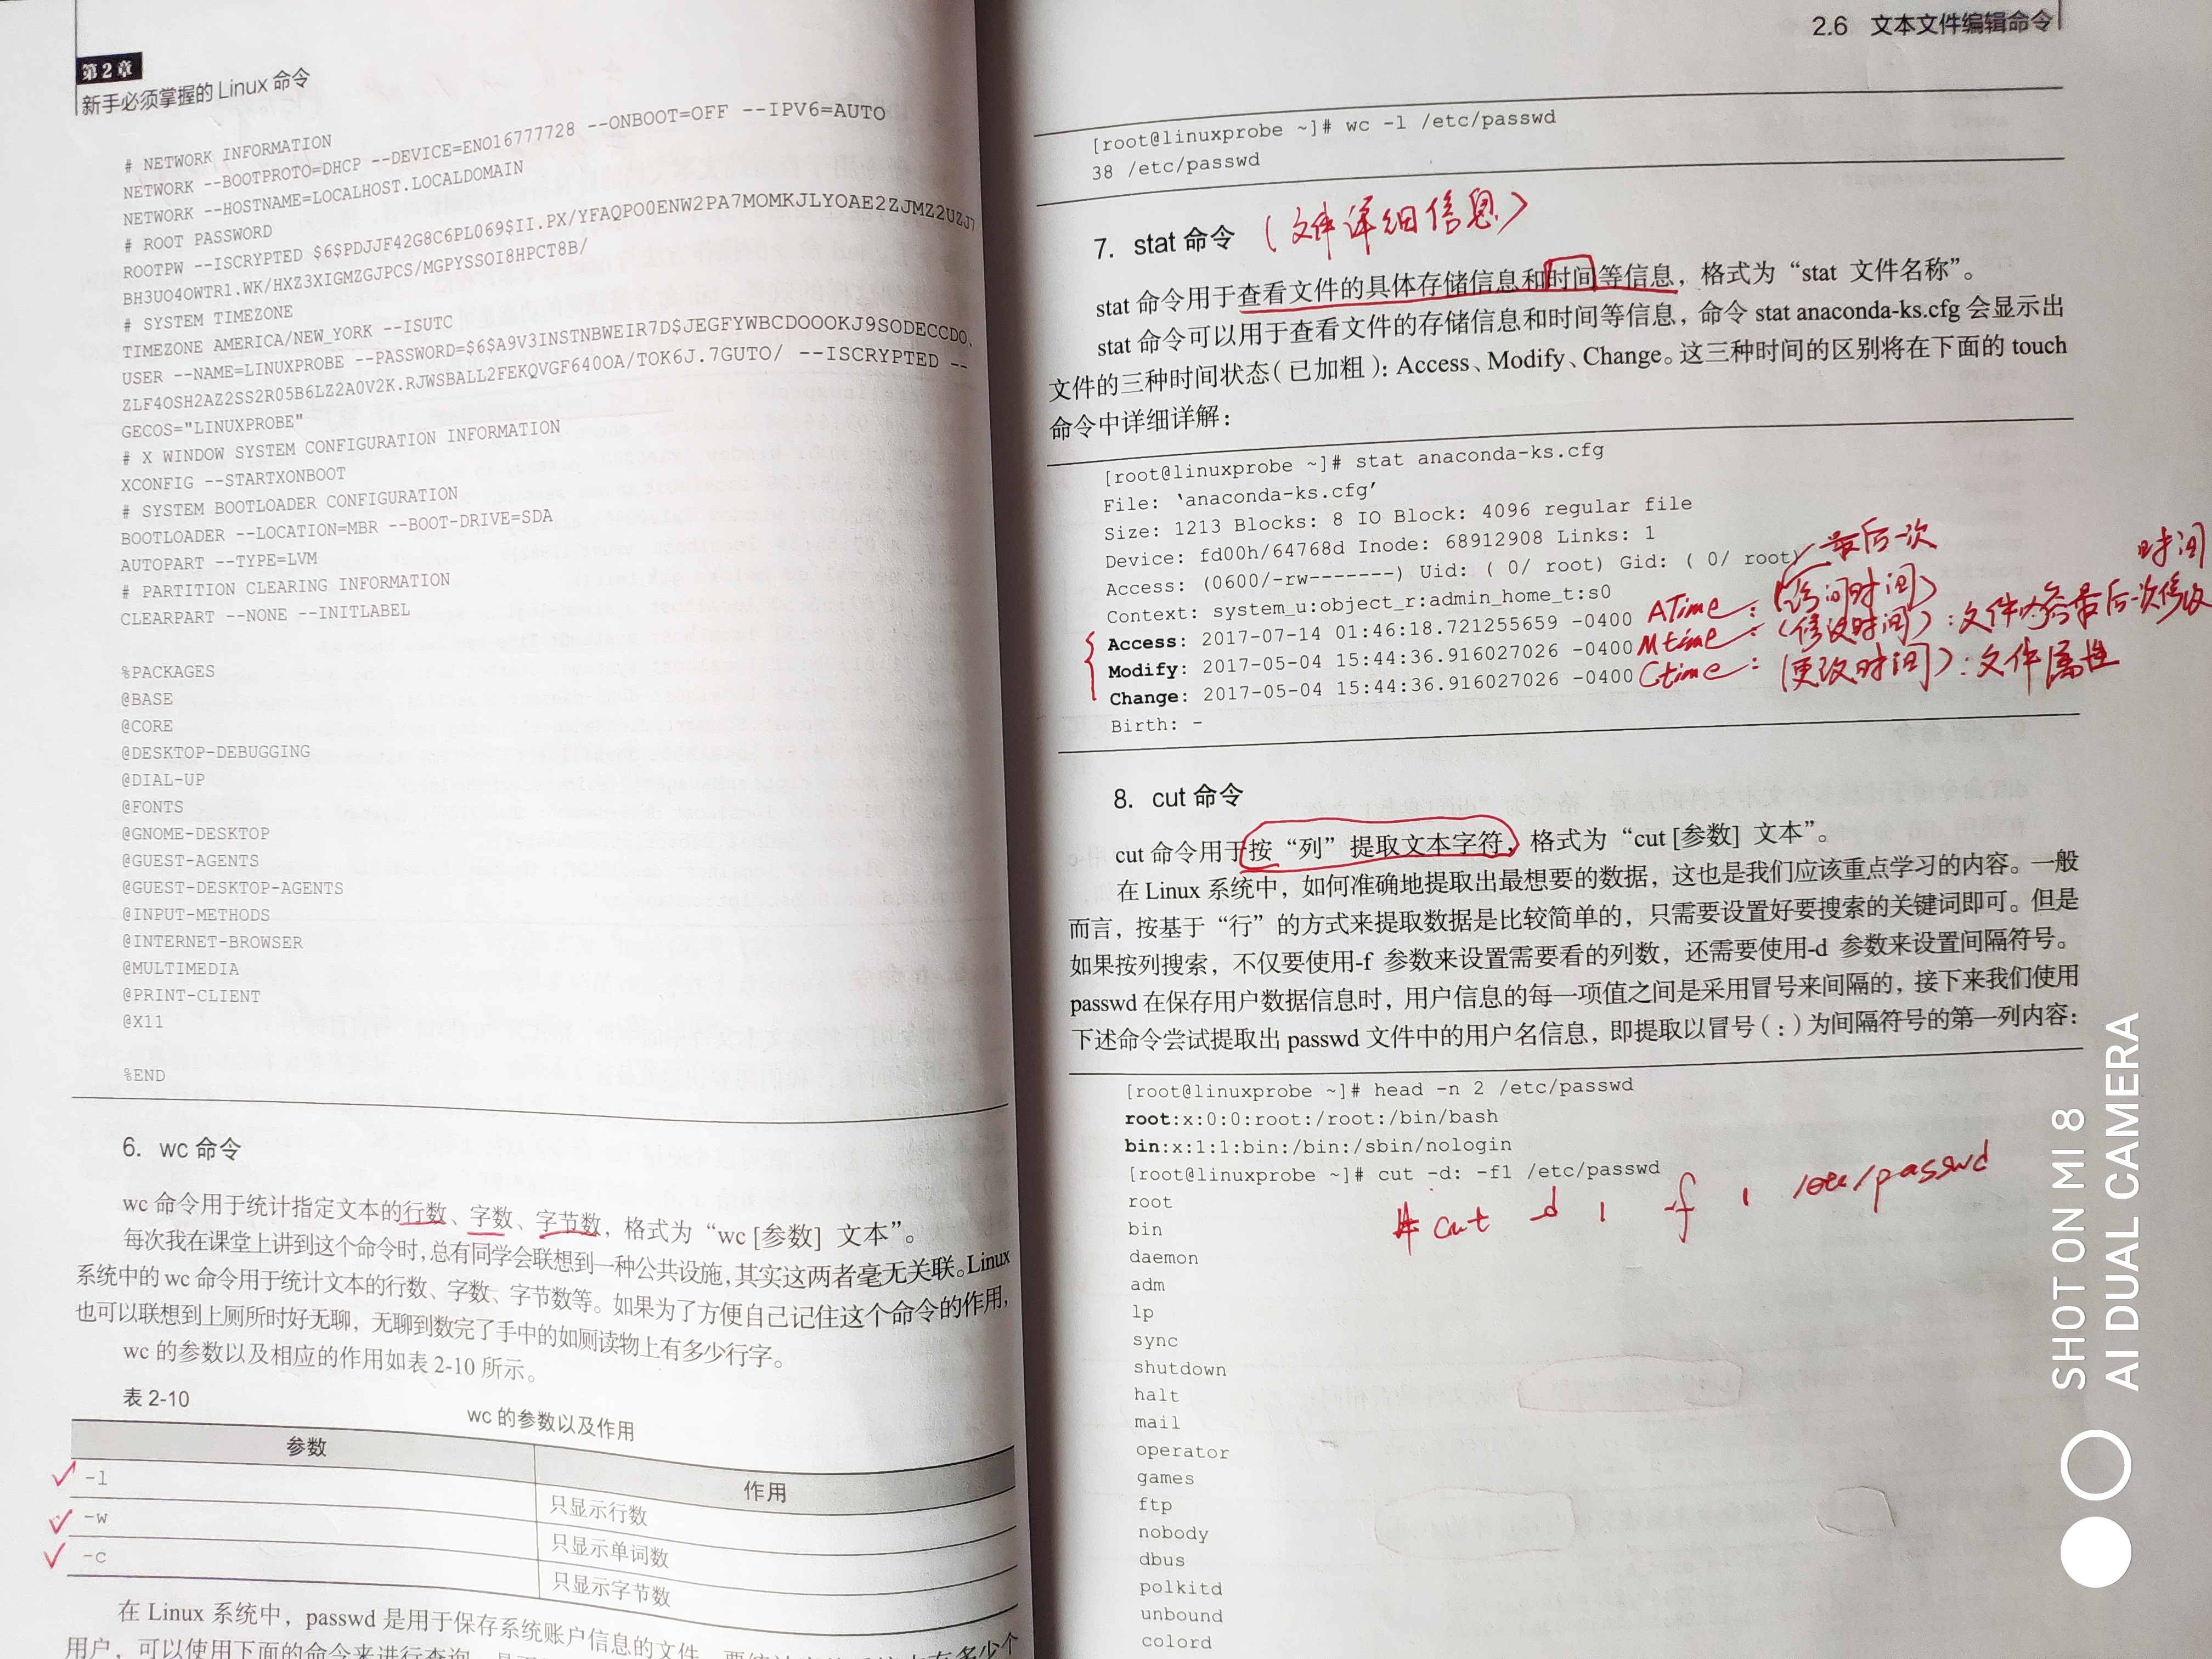 第2章
新手必须掌握的 Linux 命令
# NETWORK INFORMATION
NETWORK --BOOTPROTO=DHCP --DEVICE=ENO16777728 --ONBOOT=OFF --IPV6=AUTO
NETWORK --HOSTNAME=LOCALHOST.LOCALDOMAIN
# ROOT PASSWORD
ROOTPW --ISCRYPTED $6$PDJJF42G8C6PL069$II.PX/YFAQPO0ENW2PA7MOMKJLYOAE2ZJMZ2UZJ7
BH3UO4OWTR1.WK/HXZ3XIGMZGJPCS/MGPYSSOI8HPCT8B/
# SYSTEM TIMEZONE
TIMEZONE AMERICA/NEW_YORK --ISUTC
USER --NAME=LINUXPROBE --PASSWORD=$6$A9V3INSTNBWEIR7D$JEGFYWBCDOOOKJ9SODECCDO.
ZLF4OSH2AZ2SS2R05B6LZ2A0V2K.RJWSBALL2FEKQVGF640OA/TOK6J.7GUTO/ --ISCRYPTED --
GECOS="LINUXPROBE"
# X WINDOW SYSTEM CONFIGURATION INFORMATION
XCONFIG --STARTXONBOOT
# SYSTEM BOOTLOADER CONFIGURATION
BOOTLOADER --LOCATION=MBR --BOOT-DRIVE=SDA
AUTOPART --TYPE=LVM
# PARTITION CLEARING INFORMATION
CLEARPART --NONE --INITLABEL
%PACKAGES
@BASE
@CORE
@DESKTOP-DEBUGGING
@DIAL-UP
@FONTS
@GNOME-DESKTOP
@GUEST-AGENTS
@GUEST-DESKTOP-AGENTS
@INPUT-METHODS
@INTERNET-BROWSER
@MULTIMEDIA
@PRINT-CLIENT
@X11
%END
6. wc 命令
wc 命令用于统计指定文本的行数、字数、字节数，格式为“wc [参数] 文本”。
每次我在课堂上讲到这个命令时，总有同学会联想到一种公共设施，其实这两者毫无关联。Linux
系统中的 wc 命令用于统计文本的行数、字数、字节数等。如果为了方便自己记住这个命令的作用，
也可以联想到上厕所时好无聊，无聊到数完了手中的如厕读物上有多少行字。
wc 的参数以及相应的作用如表 2-10 所示。
表 2-10
wc 的参数以及作用
参数 作用
-l 只显示行数
-w 只显示单词数
-c 只显示字节数
在 Linux 系统中，passwd 是用于保存系统账户信息的文件，要统计
用户，可以使用下面的命令来进行查询，
2.6 文本文件编辑命令
[root@linuxprobe ~]# wc -l /etc/passwd
38 /etc/passwd
7. stat 命令 （文件详细信息）
stat 命令用于查看文件的具体存储信息和时间等信息，格式为“stat 文件名称”。
stat 命令可以用于查看文件的存储信息和时间等信息，命令 stat anaconda-ks.cfg 会显示出
文件的三种时间状态（已加粗）：Access、Modify、Change。这三种时间的区别将在下面的 touch
命令中详细详解：
[root@linuxprobe ~]# stat anaconda-ks.cfg
File: ‘anaconda-ks.cfg’
Size: 1213 Blocks: 8 IO Block: 4096 regular file
Device: fd00h/64768d Inode: 68912908 Links: 1
Access: (0600/-rw-------) Uid: ( 0/ root) Gid: ( 0/ root)
最后一次
时间
Context: system_u:object_r:admin_home_t:s0
Access: 2017-07-14 01:46:18.721255659 -0400 ATime：（访问时间）
Modify: 2017-05-04 15:44:36.916027026 -0400 Mtime：（修改时间）：文件内容最后一次修改
Change: 2017-05-04 15:44:36.916027026 -0400 Ctime：（更改时间）：文件属性
Birth: -
8. cut 命令
cut 命令用于按“列”提取文本字符，格式为“cut [参数] 文本”。
在 Linux 系统中，如何准确地提取出最想要的数据，这也是我们应该重点学习的内容。一般
而言，按基于“行”的方式来提取数据是比较简单的，只需要设置好要搜索的关键词即可。但是
如果按列搜索，不仅要使用-f 参数来设置需要看的列数，还需要使用-d 参数来设置间隔符号。
passwd 在保存用户数据信息时，用户信息的每一项值之间是采用冒号来间隔的，接下来我们使用
下述命令尝试提取出 passwd 文件中的用户名信息，即提取以冒号（:）为间隔符号的第一列内容：
[root@linuxprobe ~]# head -n 2 /etc/passwd
root:x:0:0:root:/root:/bin/bash
bin:x:1:1:bin:/bin:/sbin/nologin
[root@linuxprobe ~]# cut -d: -f1 /etc/passwd
# cut -d : -f 1 /etc/passwd
root
bin
daemon
adm
lp
sync
shutdown
halt
mail
operator
games
ftp
nobody
dbus
polkitd
unbound
colord
SHOT ON MI 8
AI DUAL CAMERA